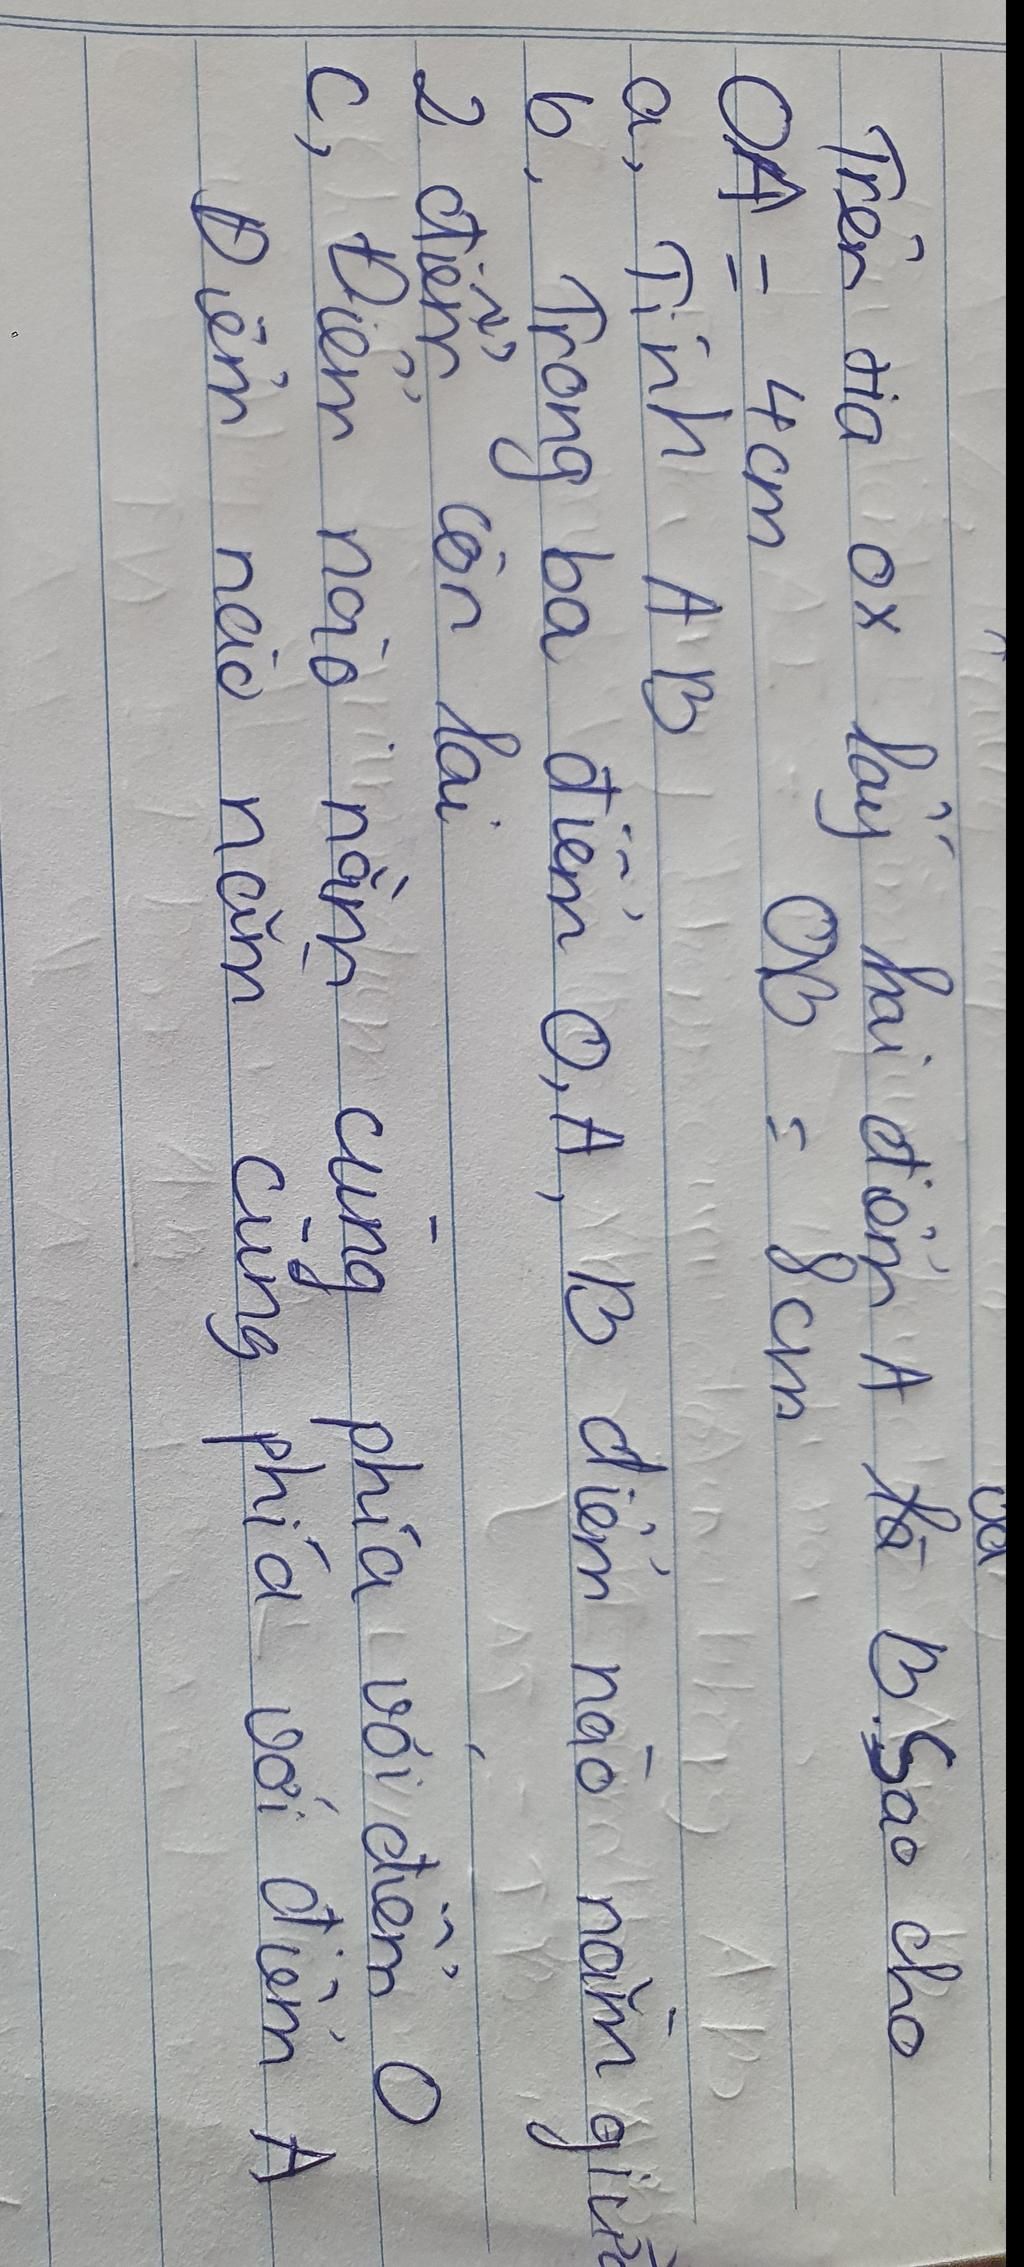 Trên tia ox lấy hai điểm A và B. Sao cho
OA = 4cm OB = 8cm
a, Tính AB
b, Trong ba điểm O, A, B điểm nào nằm giữa
2 điểm còn lại
c, Điểm nào nằm cùng phía với điểm O
Điểm nào nằm cùng phía với điểm A